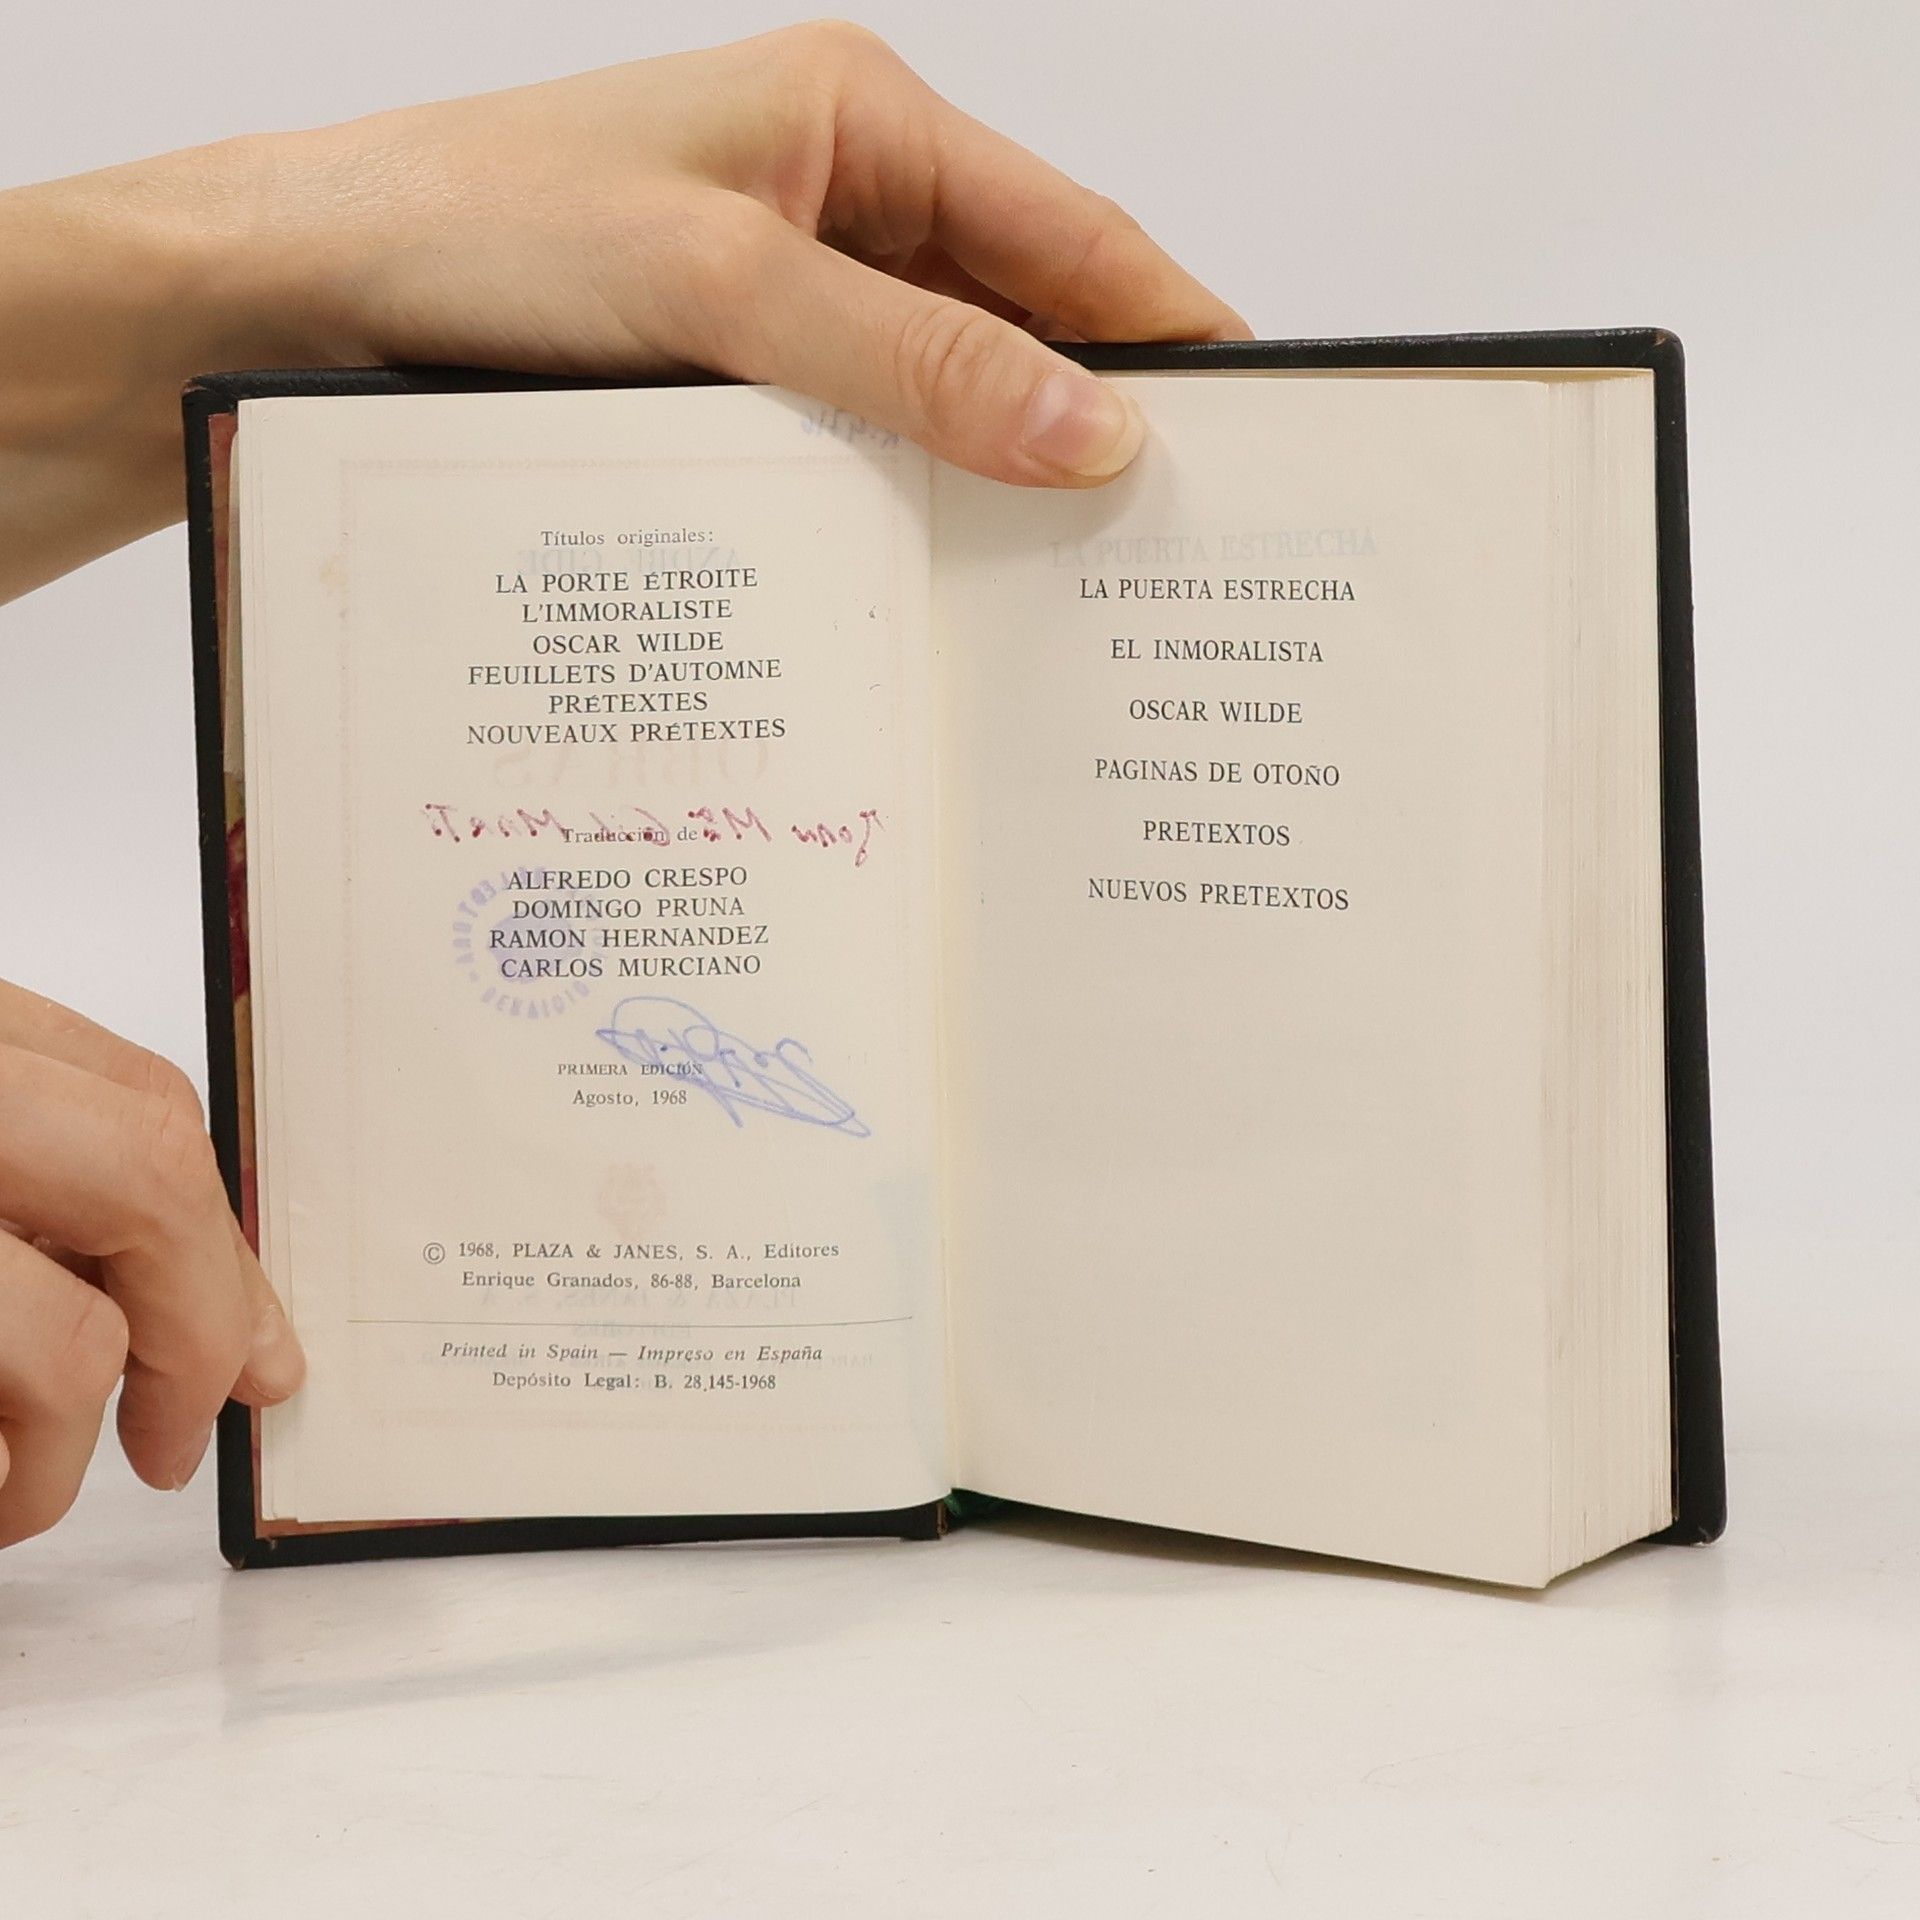 Títulos originales:
LA PORTE ÉTROITE
L'IMMORALISTE
OSCAR WILDE
FEUILLETS D'AUTOMNE
PRÉTEXTES
NOUVEAUX PRÉTEXTES
Traducción de
ALFREDO CRESPO
DOMINGO PRUNA
RAMON HERNANDEZ
CARLOS MURCIANO
PRIMERA EDICIÓN
Agosto, 1968
© 1968, PLAZA & JANES, S. A., Editores
Enrique Granados, 86-88, Barcelona
Printed in Spain — Impreso en España
Depósito Legal: B. 28.145-1968
LA PUERTA ESTRECHA
LA PUERTA ESTRECHA
EL INMORALISTA
OSCAR WILDE
PAGINAS DE OTOÑO
PRETEXTOS
NUEVOS PRETEXTOS